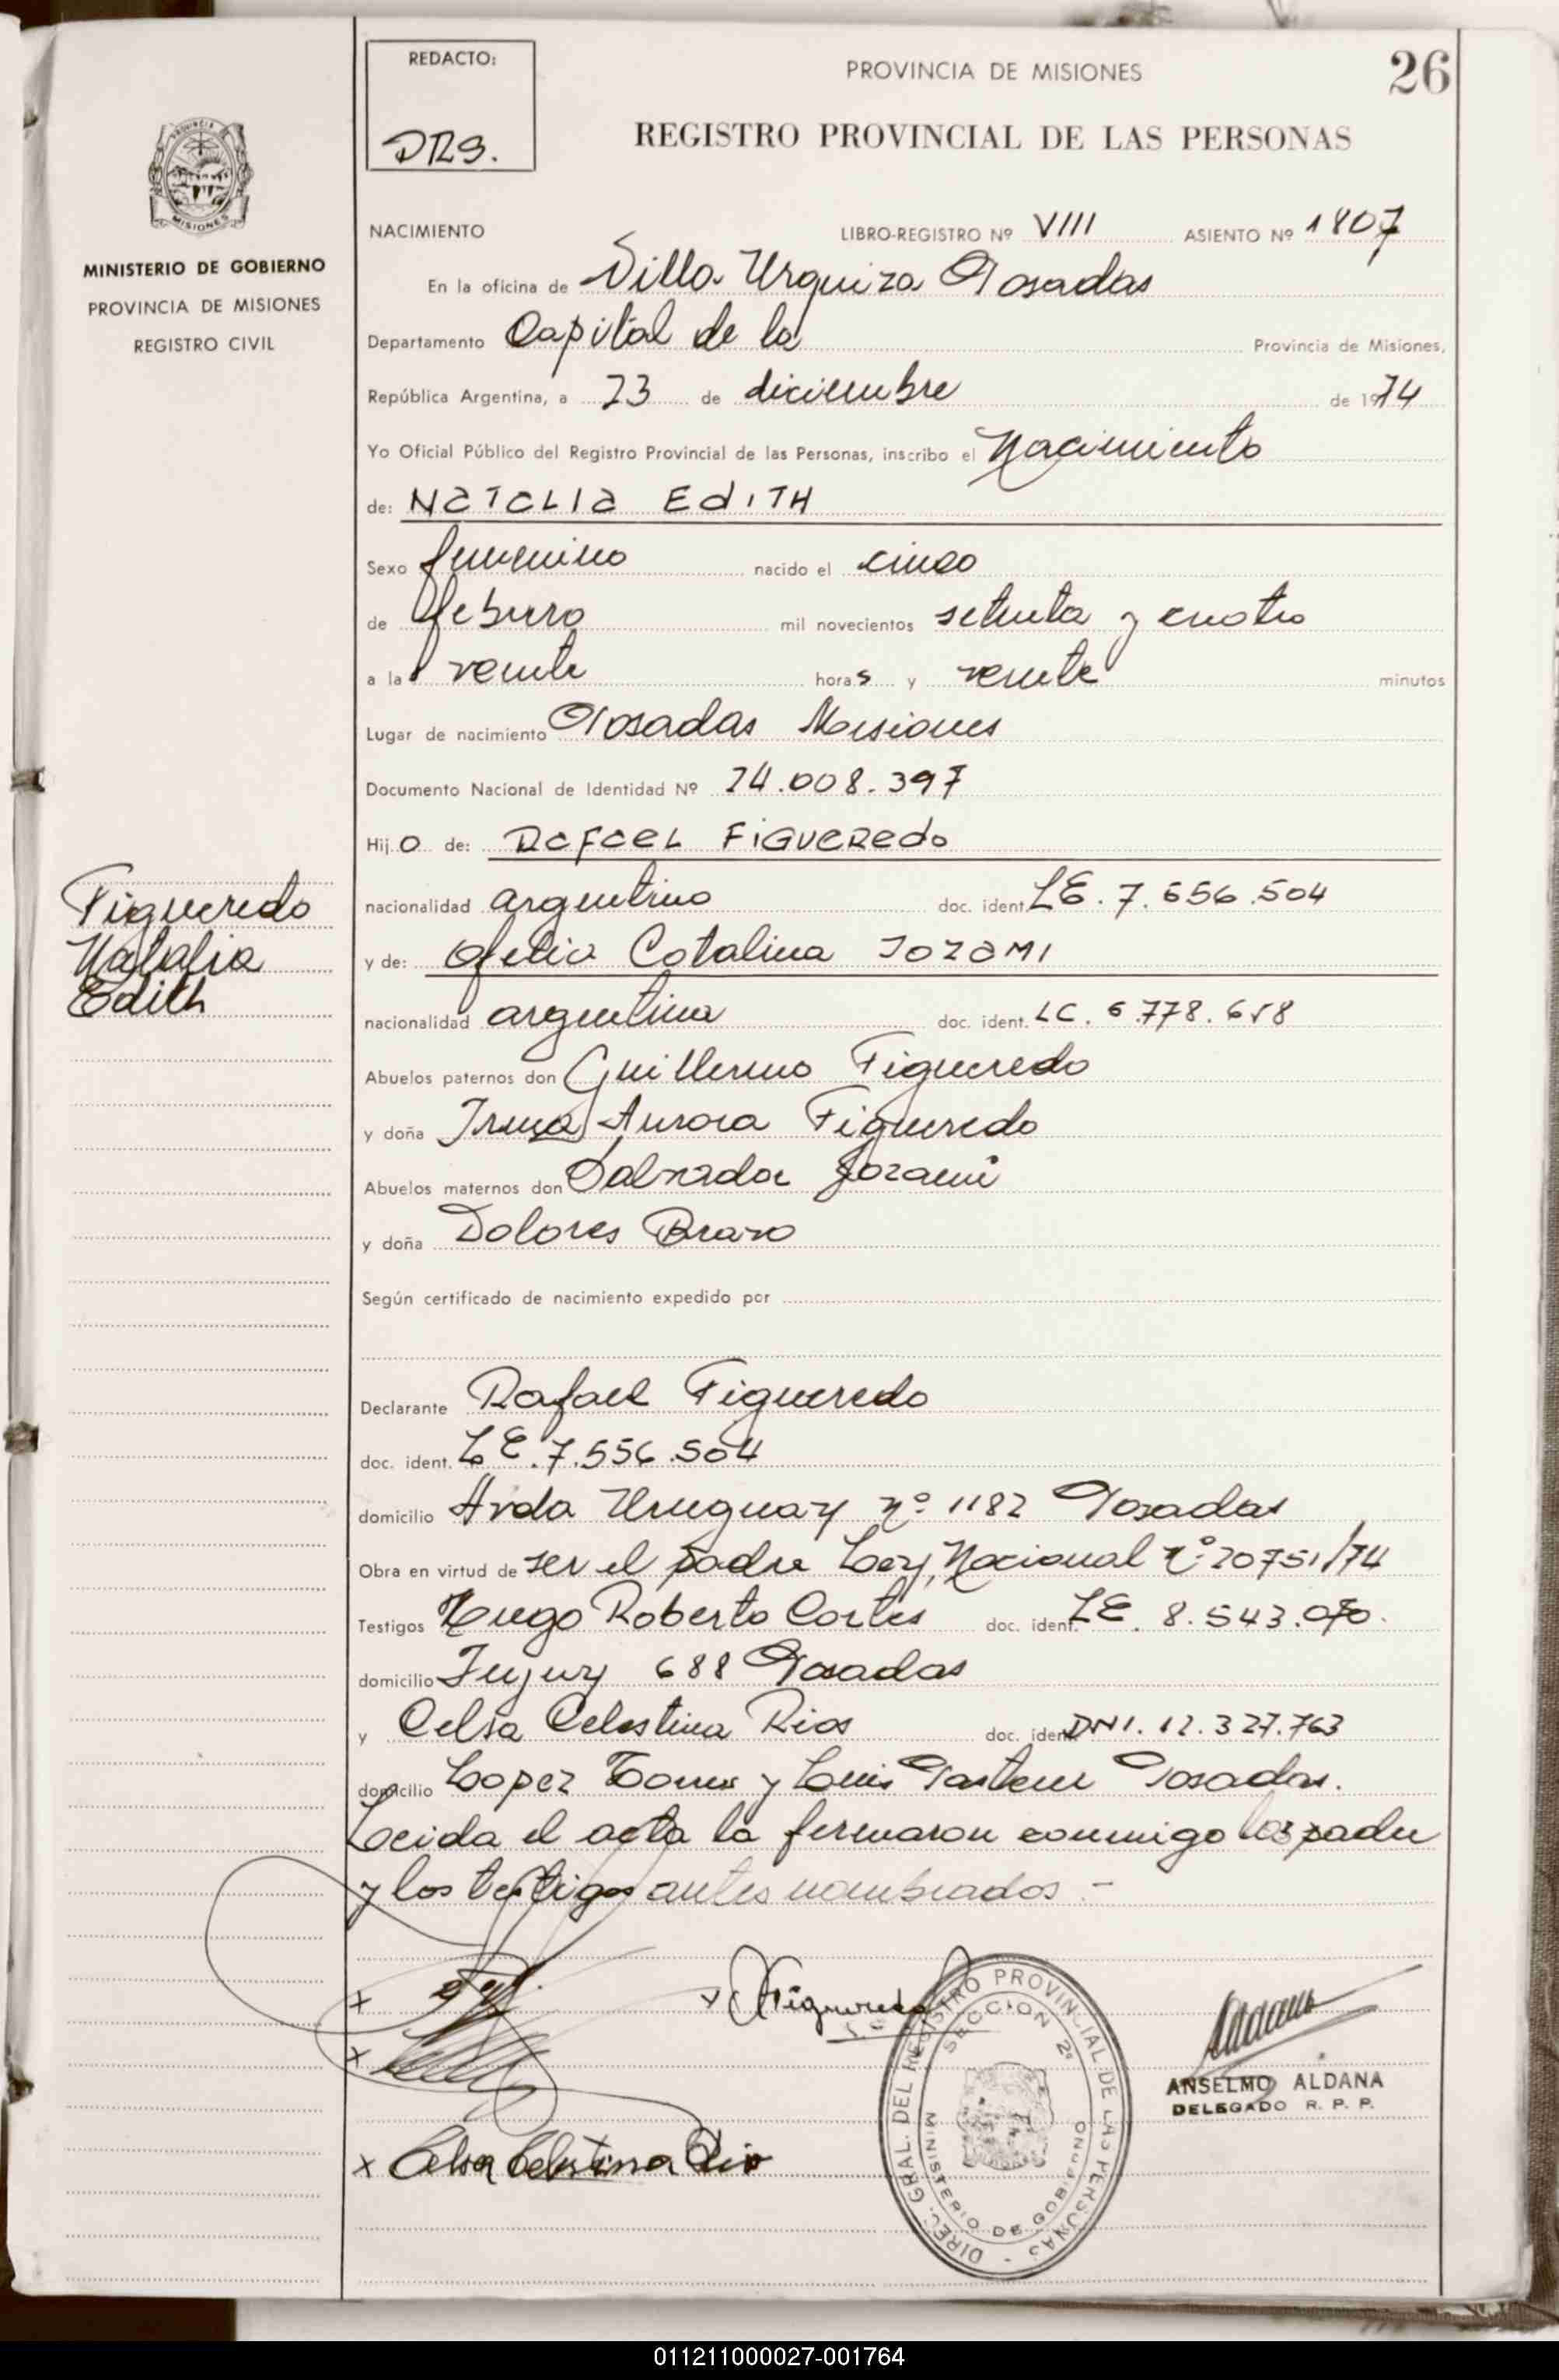 REDACTO:
DRS.
PROVINCIA DE MISIONES
26
REGISTRO PROVINCIAL DE LAS PERSONAS
PROVINCIA DE
MISIONES
MINISTERIO DE GOBIERNO
PROVINCIA DE MISIONES
REGISTRO CIVIL
NACIMIENTO LIBRO-REGISTRO Nº VIII ASIENTO Nº 1807
En la oficina de Villa Urquiza Posadas
Departamento Capital de la Provincia de Misiones,
República Argentina, a 23 de diciembre de 1974
Yo Oficial Público del Registro Provincial de las Personas, inscribo el Nacimiento
de: NATALIA EdITH
Sexo femenino nacido el cinco
de febrero mil novecientos setenta y cuatro
a la veinte horas y veinte minutos
Lugar de nacimiento Posadas Misiones
Documento Nacional de Identidad Nº 24.008.397
Hijo de: RAFAEL FIGUEREdo
Figueredo
Natalia
Edith
nacionalidad argentino doc. ident. LE. 7.556.504
y de: Ofelia Catalina JOZAMI
nacionalidad argentina doc. ident. LC. 6.778.658
Abuelos paternos don Guillermo Figueredo
y doña Aurora Figueredo
Abuelos maternos don Salvador Jozami
y doña Dolores Bravo
Según certificado de nacimiento expedido por
Declarante Rafael Figueredo
doc. ident. LE.7.556.504
domicilio Avda Uruguay nº 1182 Posadas
Obra en virtud de ser el padre Ley Nacional nº 20751/74
Testigos Hugo Roberto Cortes doc. ident. LE. 8.543.070.
domicilio Jujuy 688 Posadas
y Celsa Celestina Rios doc. ident. DNI. 12.327.763
domicilio Lopez Torres y Luis Pasteur Posadas.
Leida el acta la firmaron conmigo los padre
y los testigos antes nombrados.-
x
x Figueredo
x
x Celsa Celestina Rio
DIREC. GRAL. DEL REGISTRO PROVINCIAL DE LAS PERSONAS -
SECCION 2ª
MINISTERIO DE GOBIERNO
ANSELMO ALDANA
DELEGADO R. P. P.
011211000027-001764